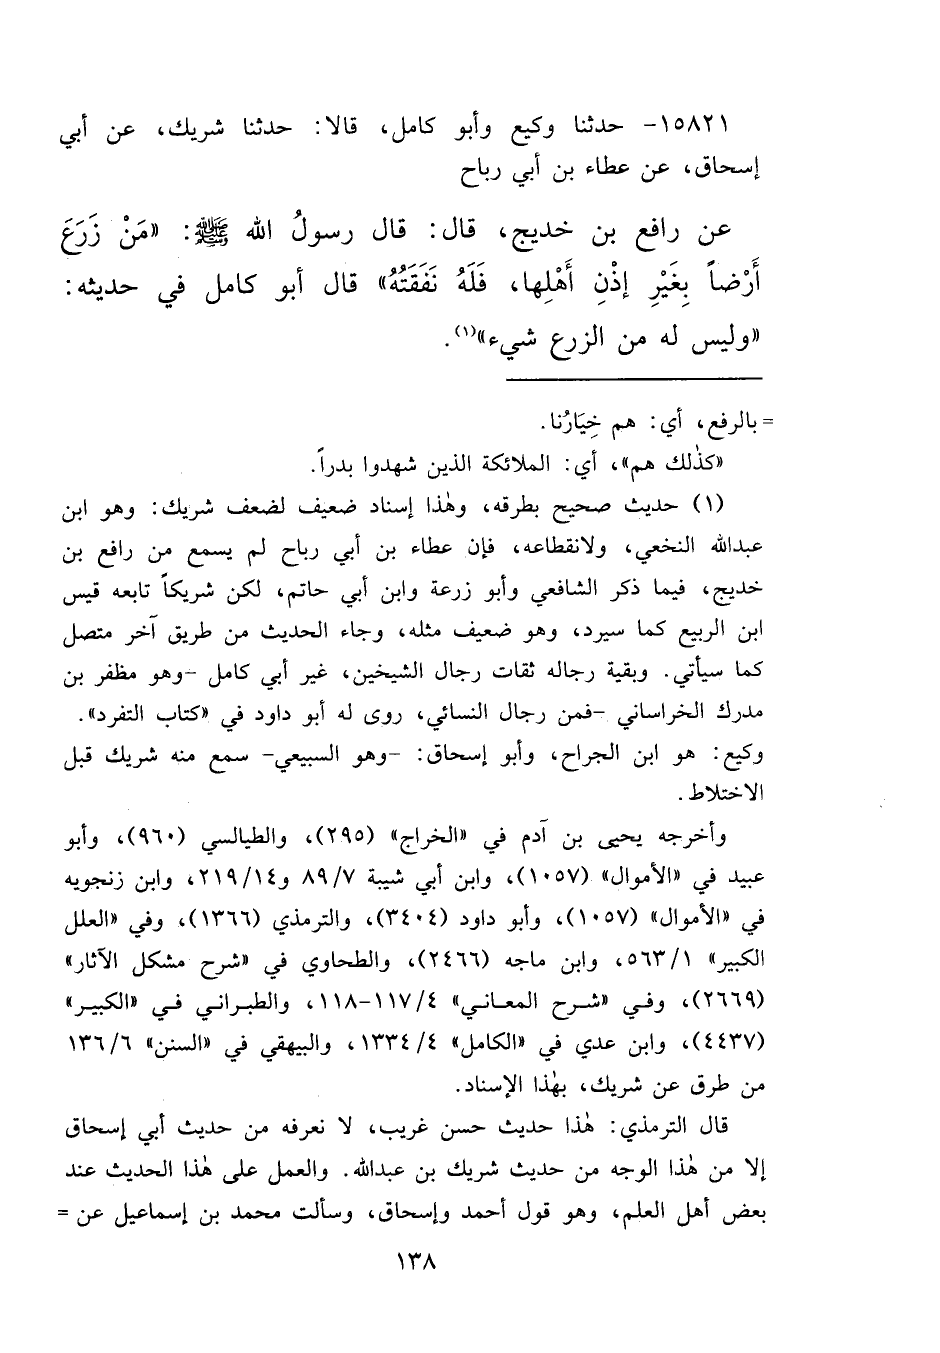 ١٥٨٢١- حدثنا وكيع وأبو كامل، قالا: حدثنا شريك، عن أبي
إسحاق، عن عطاء بن أبي رباح
عن رافع بن خديج، قال: قال رسولُ الله ﷺ: «مَنْ زَرَعَ
أَرْضاً بِغَيْرِ إذْنِ أَهْلِها، فَلَهُ نَفَقَتُهُ» قال أبو كامل في حديثه:
«وليس له من الزرع شيء»(١).
= بالرفع، أي: هم خِيَارُنا.
«كذٰلك هم»، أي: الملائكة الذين شهدوا بدراً.
(١) حديث صحيح بطرقه، وهٰذا إسناد ضعيف لضعف شريك: وهو ابن
عبدالله النخعي، ولانقطاعه، فإن عطاء بن أبي رباح لم يسمع من رافع بن
خديج، فيما ذكر الشافعي وأبو زرعة وابن أبي حاتم، لكن شريكاً تابعه قيس
ابن الربيع كما سيرد، وهو ضعيف مثله، وجاء الحديث من طريق آخر متصل
كما سيأتي. وبقية رجاله ثقات رجال الشيخين، غير أبي كامل -وهو مظفر بن
مدرك الخراساني -فمن رجال النسائي، روى له أبو داود في «كتاب التفرد».
وكيع: هو ابن الجراح، وأبو إسحاق: -وهو السبيعي- سمع منه شريك قبل
الاختلاط.
وأخرجه يحيى بن آدم في «الخراج» (٢٩٥)، والطيالسي (٩٦٠)، وأبو
عبيد في «الأموال» (١٠٥٧)، وابن أبي شيبة ٨٩/٧ و٢١٩/١٤، وابن زنجويه
في «الأموال» (١٠٥٧)، وأبو داود (٣٤٠٤)، والترمذي (١٣٦٦)، وفي «العلل
الكبير» ٥٦٣/١، وابن ماجه (٢٤٦٦)، والطحاوي في «شرح مشكل الآثار»
(٢٦٦٩)، وفي «شرح المعاني» ١١٧/٤-١١٨، والطبراني في «الكبير»
(٤٤٣٧)، وابن عدي في «الكامل» ١٣٣٤/٤، والبيهقي في «السنن» ١٣٦/٦
من طرق عن شريك، بهٰذا الإسناد.
قال الترمذي: هٰذا حديث حسن غريب، لا نعرفه من حديث أبي إسحاق
إلا من هٰذا الوجه من حديث شريك بن عبدالله. والعمل على هٰذا الحديث عند
بعض أهل العلم، وهو قول أحمد وإسحاق، وسألت محمد بن إسماعيل عن =
١٣٨